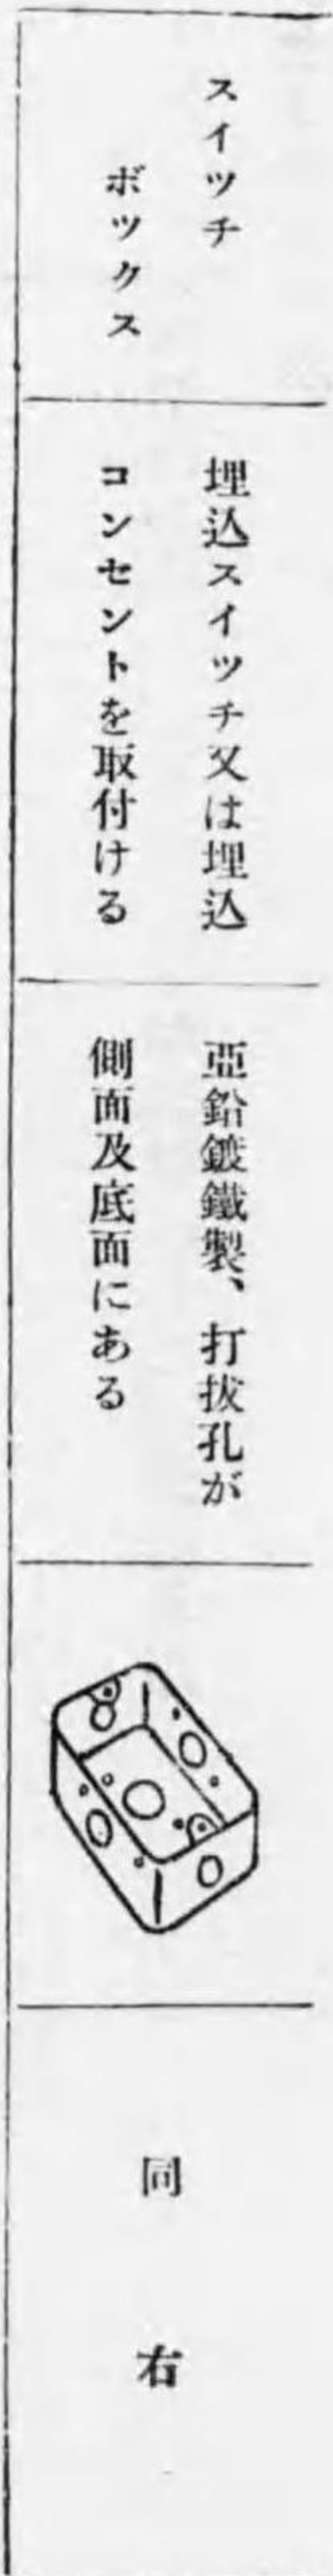 スイツチ
ボックス
埋込スイッチ又は埋込
コンセントを取付ける
亞鉛鍍鐵製、打拔孔が
側面及底面にある
同右